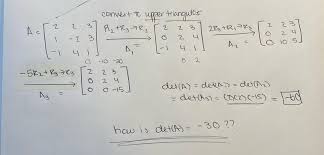 convert to upper triangular
A = [2 2 3
1 -2 3
-1 4 1]
R2+R3→R2
A1 =
[2 2 3
0 2 4
-1 4 1]
0 2
2R3+R1→R3
A2 =
[2 2 3
0 2 4
0 10 5]
0 -10 -20
-5R2+R3→R3
A3 =
[2 2 3
0 2 4
0 0 -15]
det(A) = det(A1) = det(A2)
= det(A3) = (2)(2)(-15) = -60
how is det(A) = -30 ??